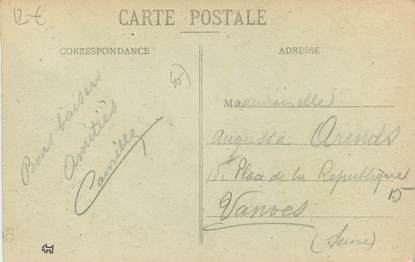 12 €
CARTE POSTALE
CORRESPONDANCE
ADRESSE
Bons baisers
Amitiés
Camille
Mademoiselle
Augusta Arends
15 Place de la Republique
15
Vanves
(Seine)